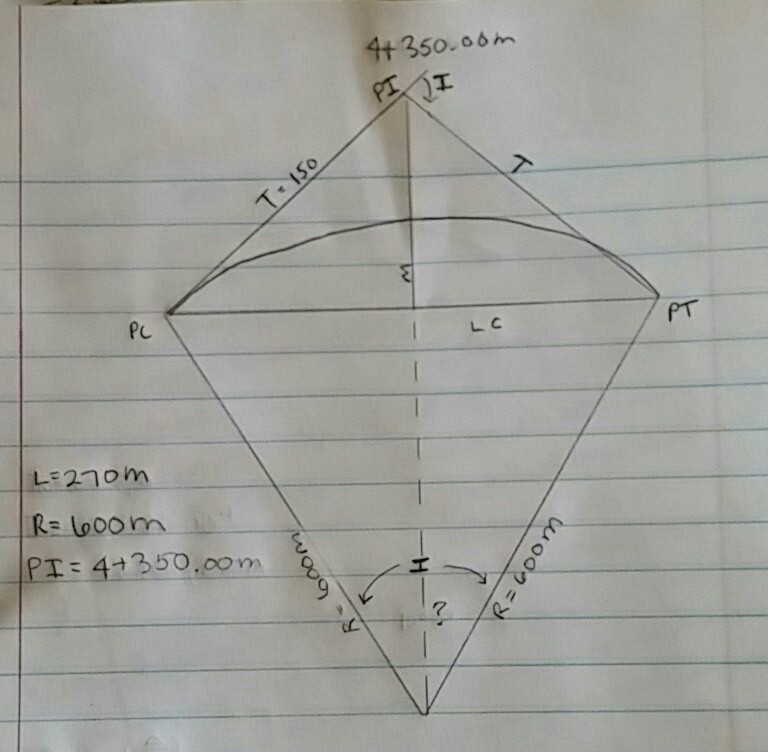 4+350.00m
PI
I
T=150
T
E
PC
LC
PT
L=270m
R=600m
PI=4+350.00m
I
R=600m
?
R=600m